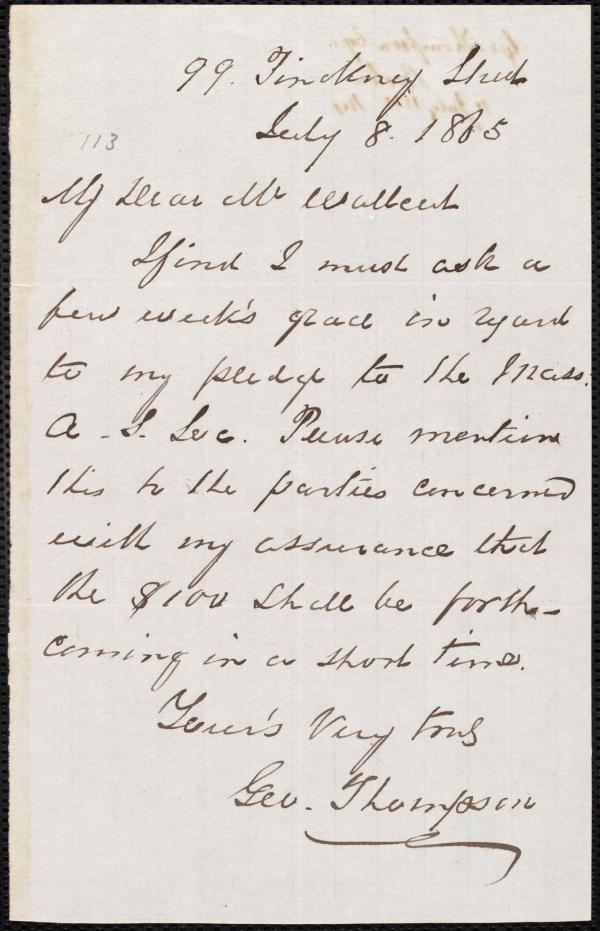 99. Pinckney Street
July 8. 1865
113
My Dear Mr Wallcut
I find I must ask a
few week's grace in regard
to my pledge to the Mass:
A. S. Soc. Please mention
this to the parties concerned
with my assurance that
the $100 shall be forth-
coming in a short time.
Your's Very truly
Geo. Thompson